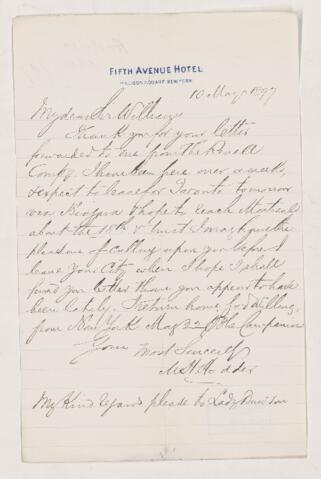 FIFTH AVENUE HOTEL
MADISON SQUARE NEW YORK
10 May 1897
My dear Sir William
Thank you for your letter
forwarded to me from the
Compy. I have been here over a week
& expect to leave for Toronto tomorrow
via Niagara & hope to reach Montreal
about the 15th & trust I may have the
pleasure of calling upon you before I
leave your City when I hope I shall
find you better than you appear to have
been lately. I return home, God willing,
from New York May 22 by the Campania
Yours Most Sincerely
M. H. Hodder
My Kind regards please to Lady Dawson